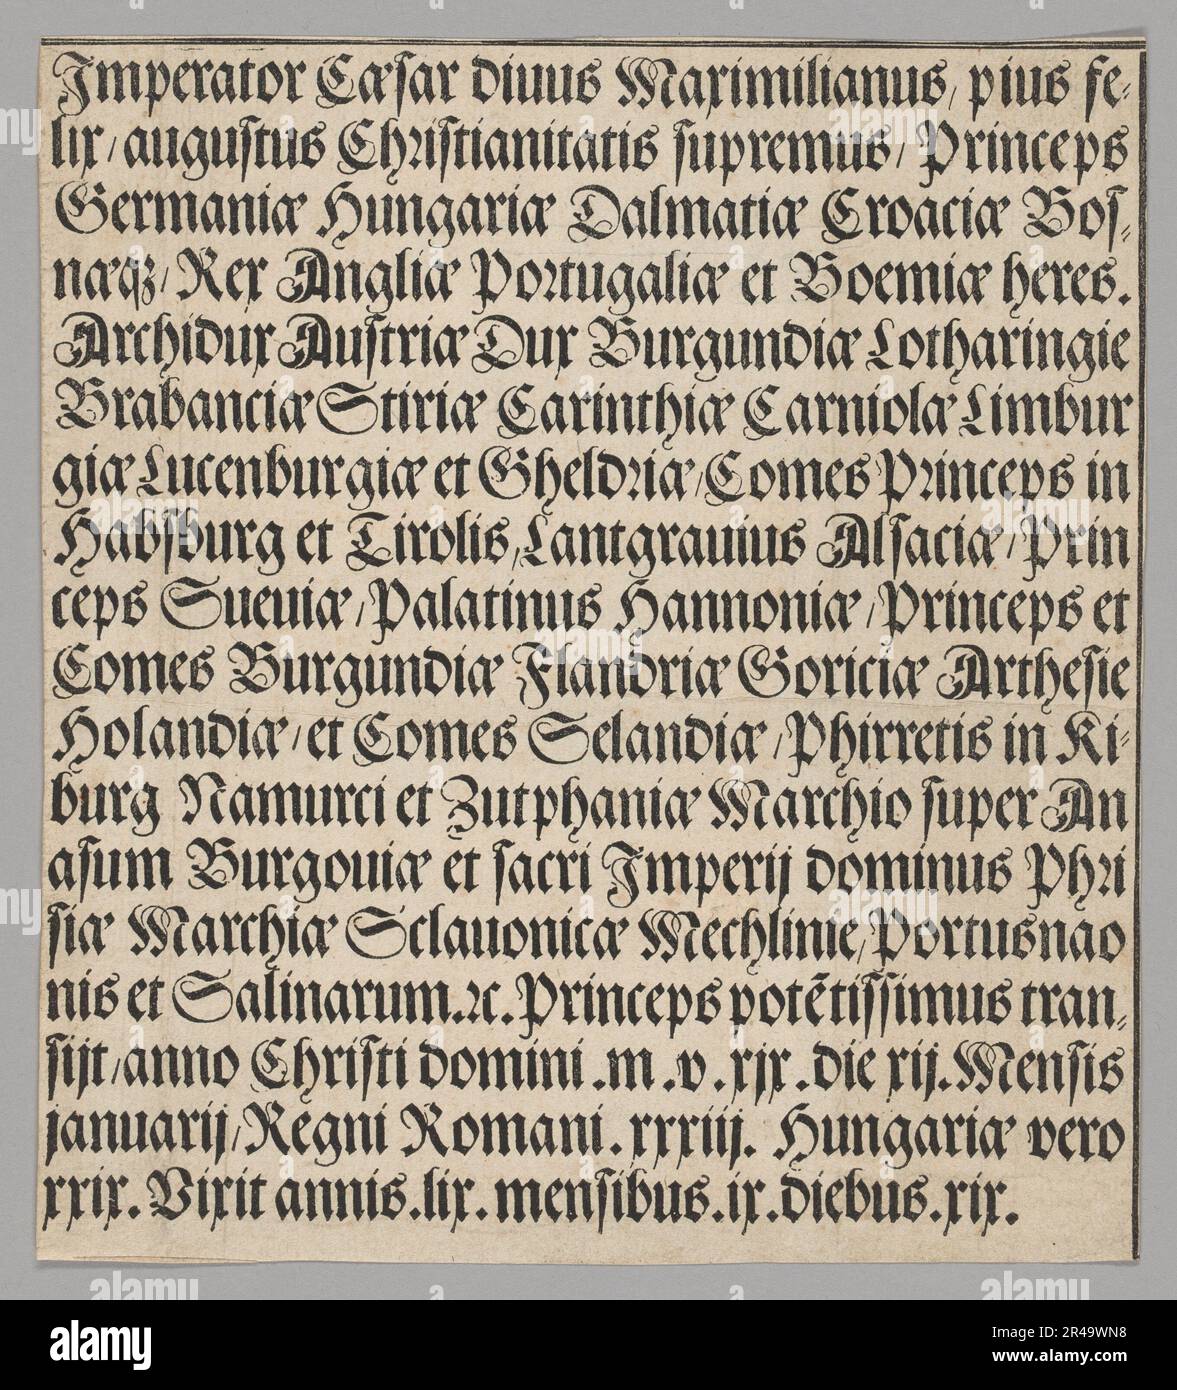 Imperator Cæſar diuus Maximilianus, pius fe-
lix/auguſtus Chriſtianitatis ſupremus/Princeps
Germaniæ Hungariæ Dalmatiæ Croaciæ Boſ-
næqꝫ/Rex Angliæ Portugaliæ et Boemiæ heres.
Archidux Auſtriæ Dux Burgundiæ Lotharingie
Brabanciæ Stiriæ Carinthiæ Carniolæ Limbur
giæ Lucenburgiæ et Gheldriæ/Comes Princeps in
Habſburg et Tirolis/Lantgrauius Alſaciæ/Prin
ceps Sueuiæ/Palatinus Hannoniæ/Princeps et
Comes Burgundiæ Flandriæ Goriciæ Artheſie
Holandiæ/et Comes Selandiæ/Phirretis in Ki-
burg Namurci et Zutphaniæ Marchio ſuper An
aſum Burgouiæ et ſacri Imperij dominus Phri
ſiæ Marchiæ Sclauonicæ Mechlinie/Portusnao
nis et Salinarum.ꝛc.Princeps potẽtiſſimus tran-
ſijt/anno Chriſti domini.m.v.xjx.die xij.Menſis
januarij/Regni Romani.xxxiij. Hungariæ vero
xxix.Vixit annis.lix.menſibus.ix.diebus.xix.
alamy
Image ID: 2R49WN8
www.alamy.com